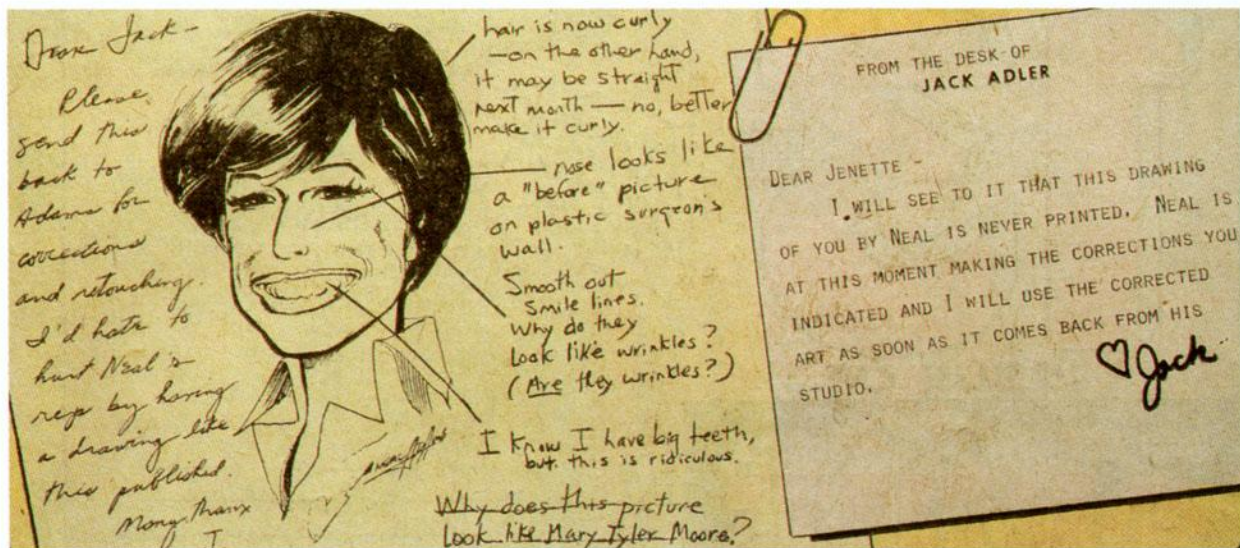 Dear Jack -
Please
send this
back to
Adams for
corrections
and retouching.
I'd hate to
hurt Neal's
rep by having
a drawing like
this published.
Many thanx
J
hair is now curly
— on the other hand,
it may be straight
next month — no, better
make it curly.
nose looks like
a "before" picture
on plastic surgeon's
wall.
Smooth out
Smile lines.
Why do they
Look like wrinkles?
(Are they wrinkles?)
I know I have big teeth,
but this is ridiculous.
Why does this picture
look like Mary Tyler Moore?
FROM THE DESK OF
JACK ADLER
DEAR JENETTE -
I WILL SEE TO IT THAT THIS DRAWING
OF YOU BY NEAL IS NEVER PRINTED. NEAL IS
AT THIS MOMENT MAKING THE CORRECTIONS YOU
INDICATED AND I WILL USE THE CORRECTED
ART AS SOON AS IT COMES BACK FROM HIS
STUDIO.
♡ Jack